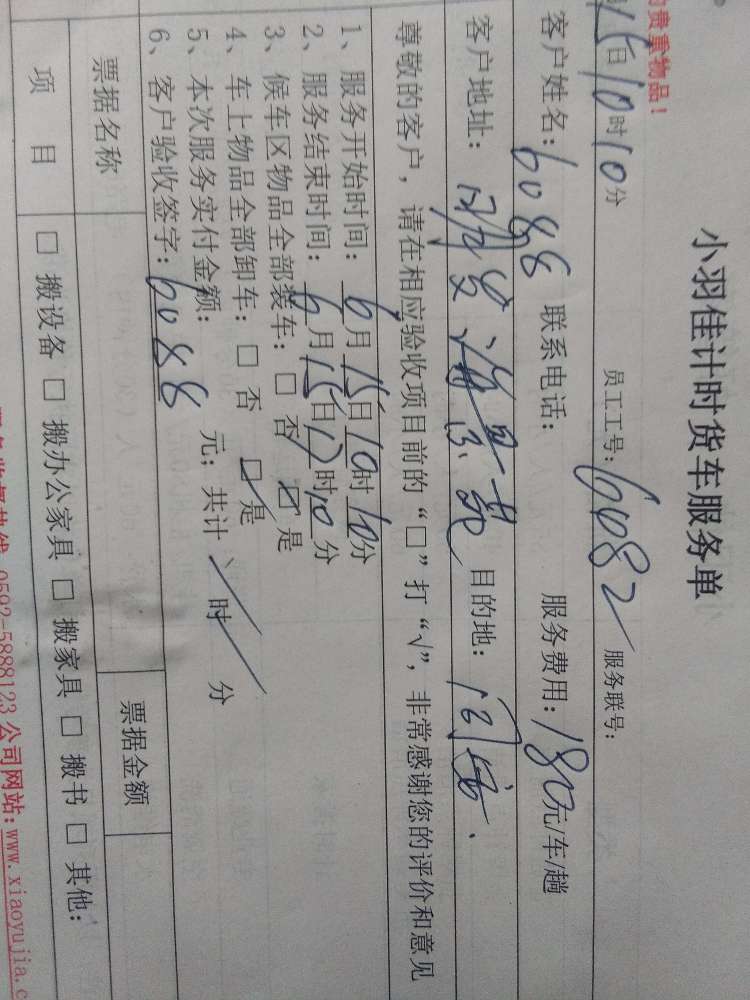 小羽佳计时货车服务单
的贵重物品!
15日10时10分 员工工号:6082 服务联号:
客户姓名:6088 联系电话: 服务费用:180元/车/趟
客户地址: 目的地:同安.
尊敬的客户,请在相应验收项目前的“□”打“√”,非常感谢您的评价和意见
1、服务开始时间:6月15日10时10分
2、服务结束时间:6月15日17时10分
3、候车区物品全部装车:□ 否 ☑ 是
4、车上物品全部卸车:□ 否 ☑ 是
5、本次服务实付金额: 元;共计 时 分
6、客户验收签字:6088
票据名称 票据金额
项 目 □ 搬设备 □ 搬办公家具 □ 搬家具 □ 搬书 □ 其他:
0592-5888123 公司网站:www.xiaoyujia.c